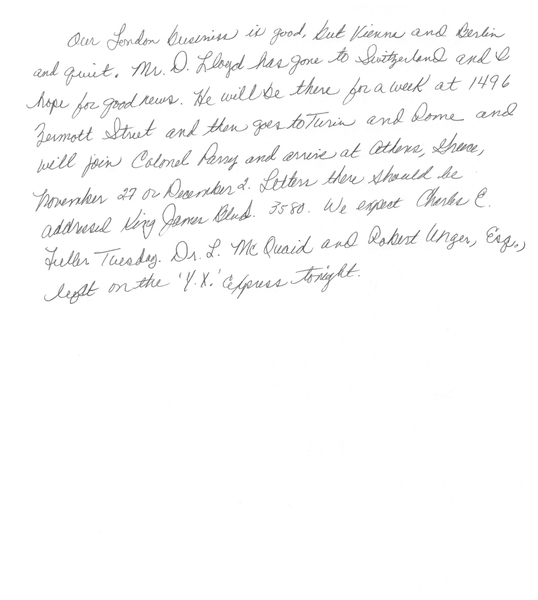 Our London business is good, but Vienna and Berlin
and quiet. Mr. D. Lloyd has gone to Switzerland and I
hope for good news. He will be there for a week at 1496
Zermott Street and then goes to Turin and Rome and
will join Colonel Parry and arrive at Athens, Greece,
November 27 or December 2. Letters there should be
addressed King James Blvd. 3580. We expect Charles E.
Fuller Tuesday. Dr. L. McQuaid and Robert Unger, Esq.,
left on the 'Y.X.' Express tonight.